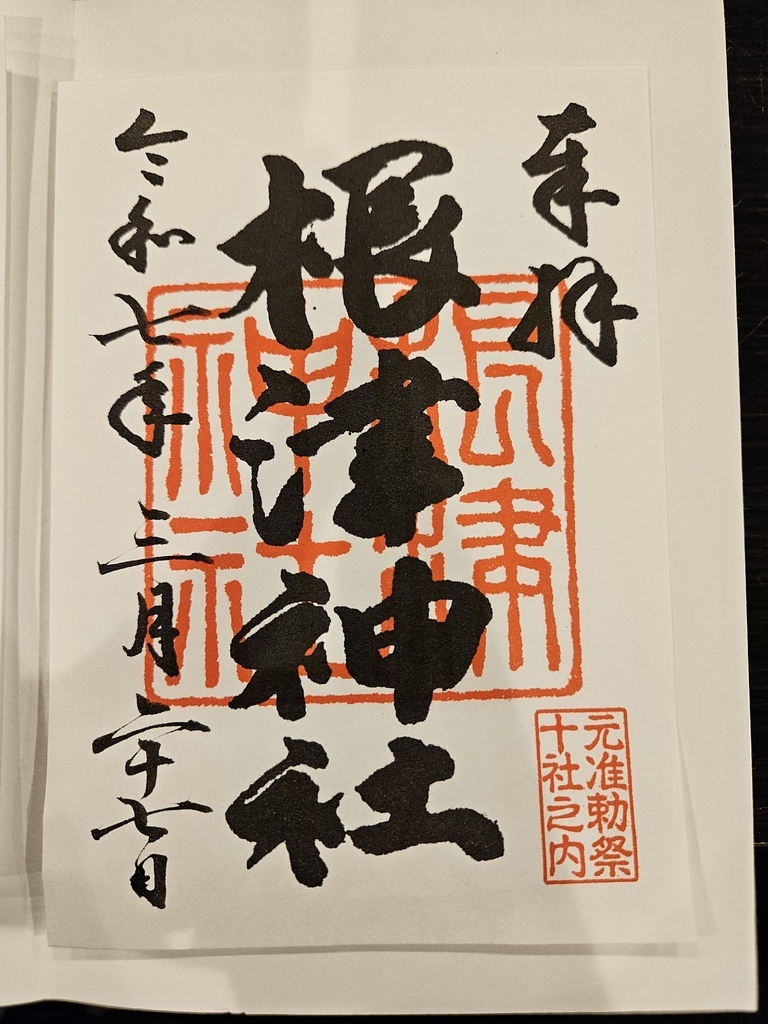 奉拝
根津神社
根津神社
元准勅祭
十社之内
令和七年三月二十七日